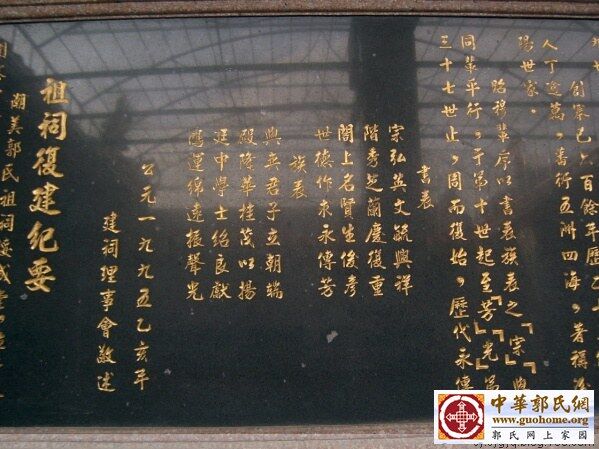 創寨已六百餘年歷
人丁逾萬，蕃衍五洲四海，著稱
陽世家。
昭穆輩序以書表族表之「宗」「興
同輩平行，于第十世起至「芳」「光」為
三十七世止，周而復始，歷代永傳
書表
宗弘英文毓興祥
階秀芝蘭慶復重
閣上名賢生俊彥
世德作求永傳芳
族表
興英君子立朝端
殿陛華桂茂以揚
廷中學士紹良猷
應運綿遠振聲光
公元一九九五乙亥年
建祠理事會敬述
祖祠復建紀要
潮美郭氏祖祠
中華郭氏網
www.guohome.org
郭氏网上家园